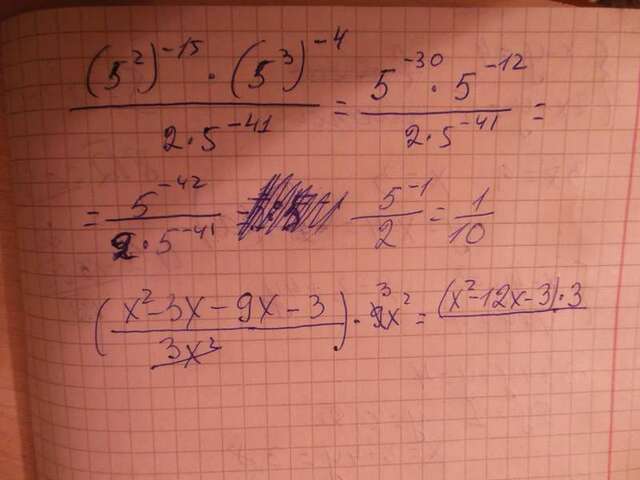 (5²)⁻¹⁵ · (5³)⁻⁴ / 2 · 5⁻⁴¹ = 5⁻³⁰ · 5⁻¹² / 2 · 5⁻⁴¹ =
= 5⁻⁴² / 2 · 5⁻⁴¹ 5⁻¹ / 2 = 1 / 10
(x² - 3x - 9x - 3 / 3x²) · 9³x² = (x² - 12x - 3) · 3